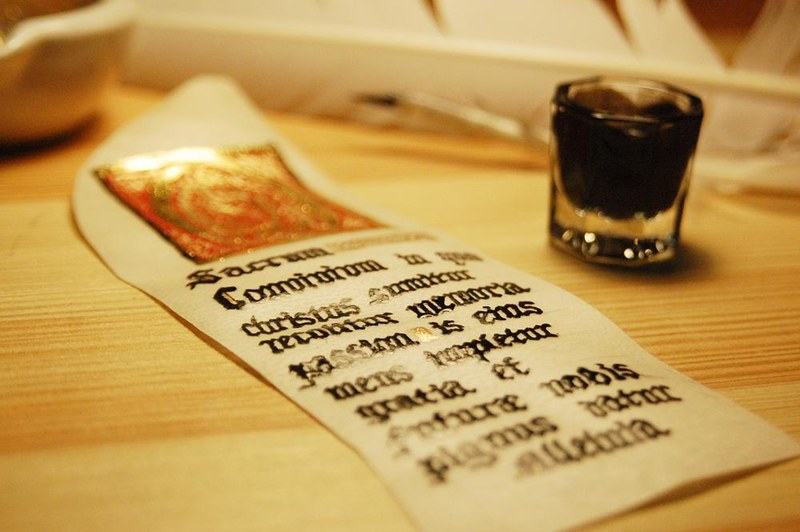 Sacrum
Convivium in quo
christus Sumitur
recolitur memoria
passionis eius
mens impletur
gratia et
futuræ nobis
pignus datur
Alleluia